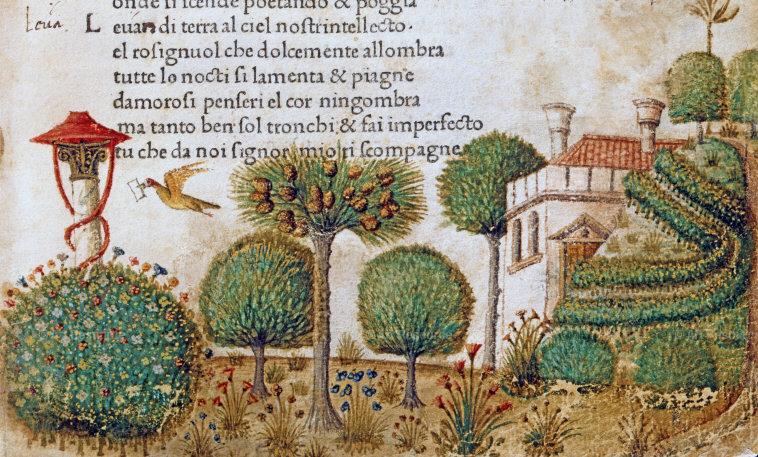 onde si scende poetando & poggia
Leuan di terra al ciel nostrintellecto.
el rosignuol che dolcemente allombra
tutte le nocti si lamenta & piagne
damorosi penseri el cor ningombra
ma tanto ben sol tronchi & fai imperfecto
tu che da noi signor mio ti scompagne